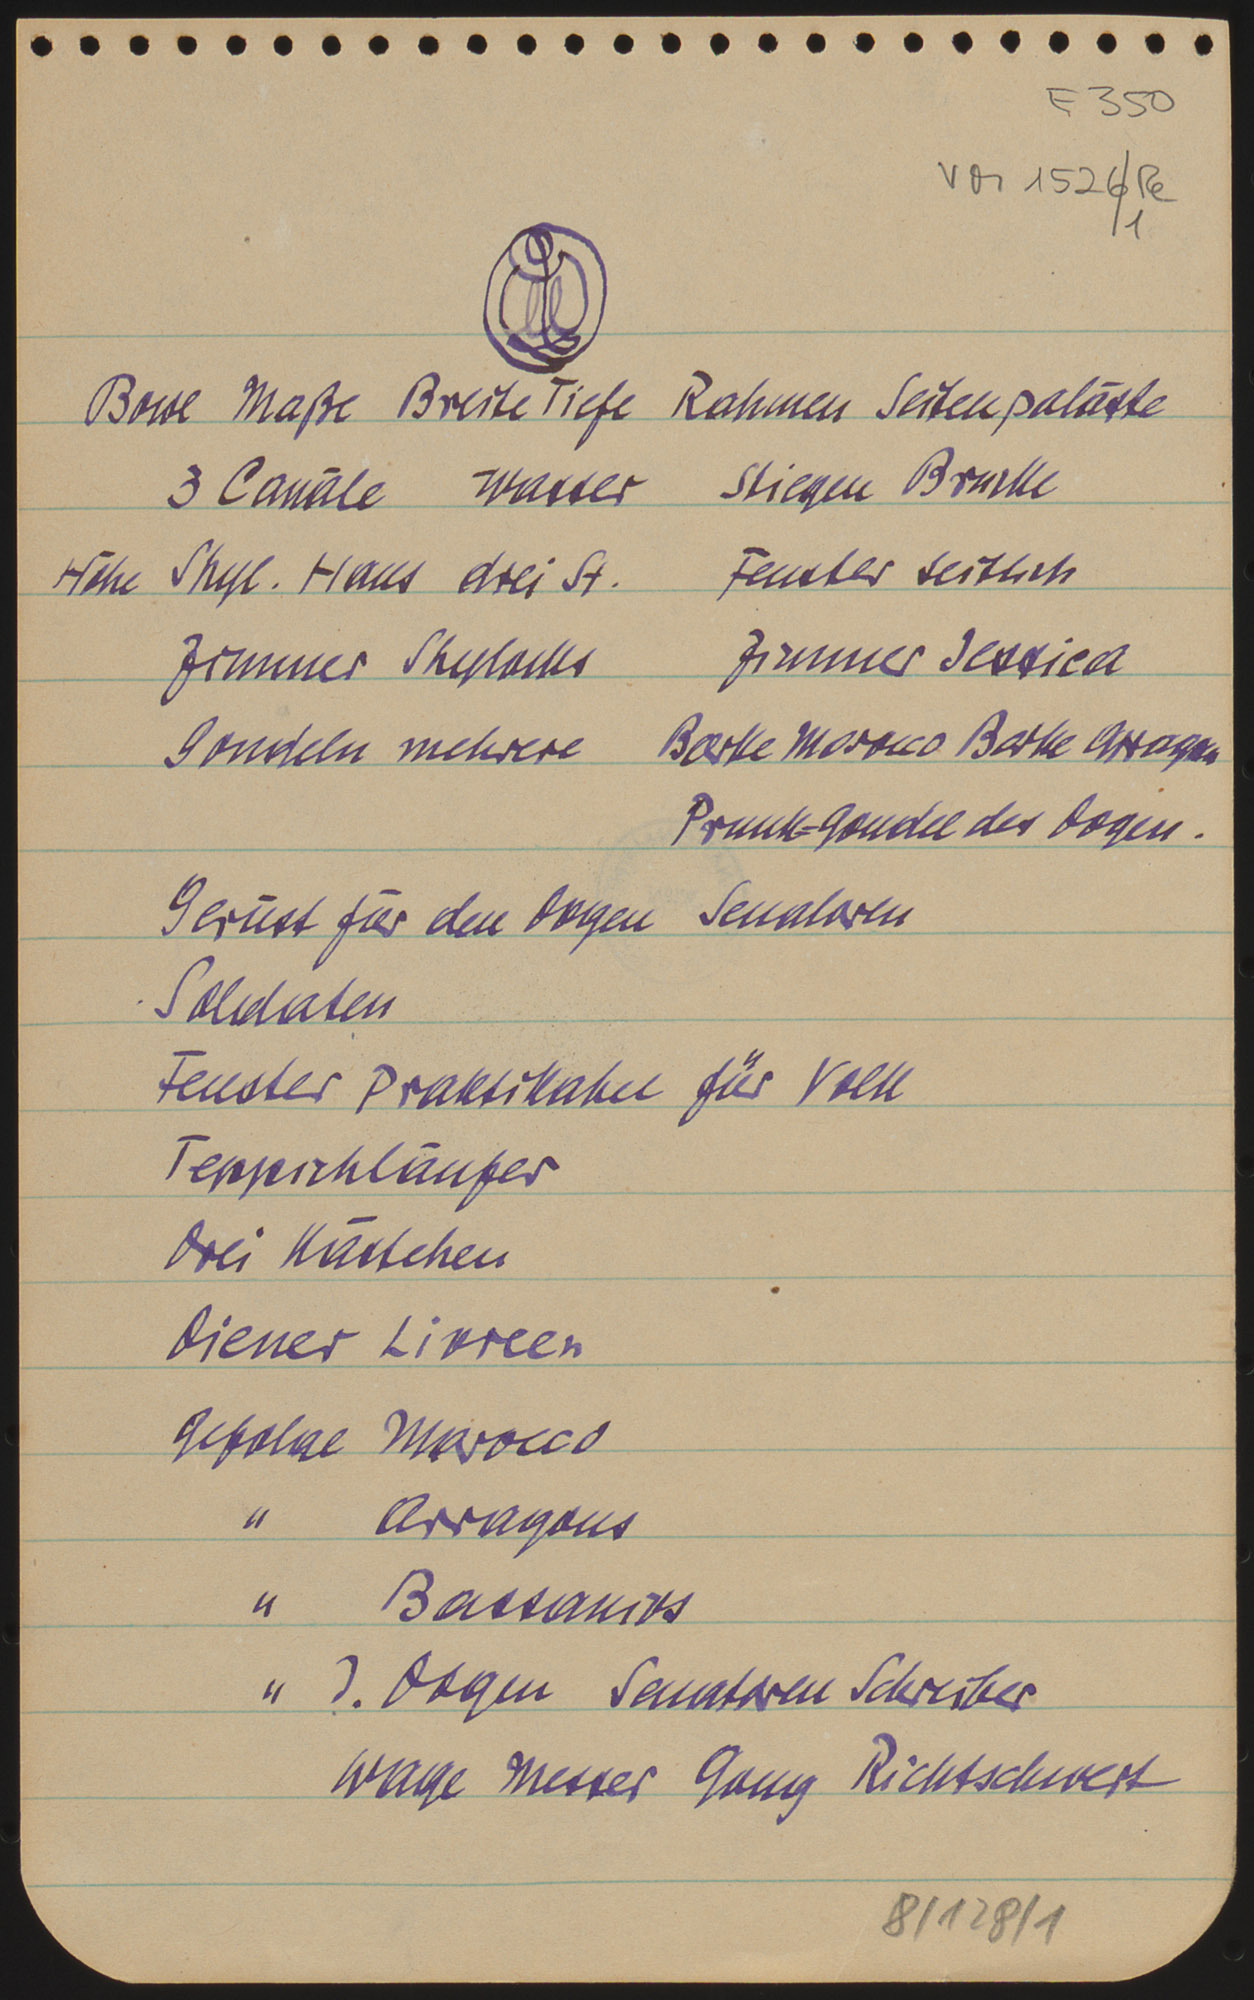 E 350
VM 1526/Re
1
Maße Breite Tiefe Rahmen Seitenpaläste
3 Canäle Wasser Stiegen Brücke
Höhe Shyl. Haus drei St. Fenster seitlich
Zimmer Shylocks Zimmer Jessica
Gondeln mehrere Barke Marocco Barke Arragon
Prunk=Gondel des Dogen.
Gerüst für den Dogen Senatoren
Soldaten
Fenster praktikabel für Volk
Teppichläufer
Drei Kästchen
Diener Livreen
Gefolge Marocco
" Arragons
" Bassanios
" d. Dogen Senatoren Schreiber
Wage Messer Gong Richtschwert
8/128/1